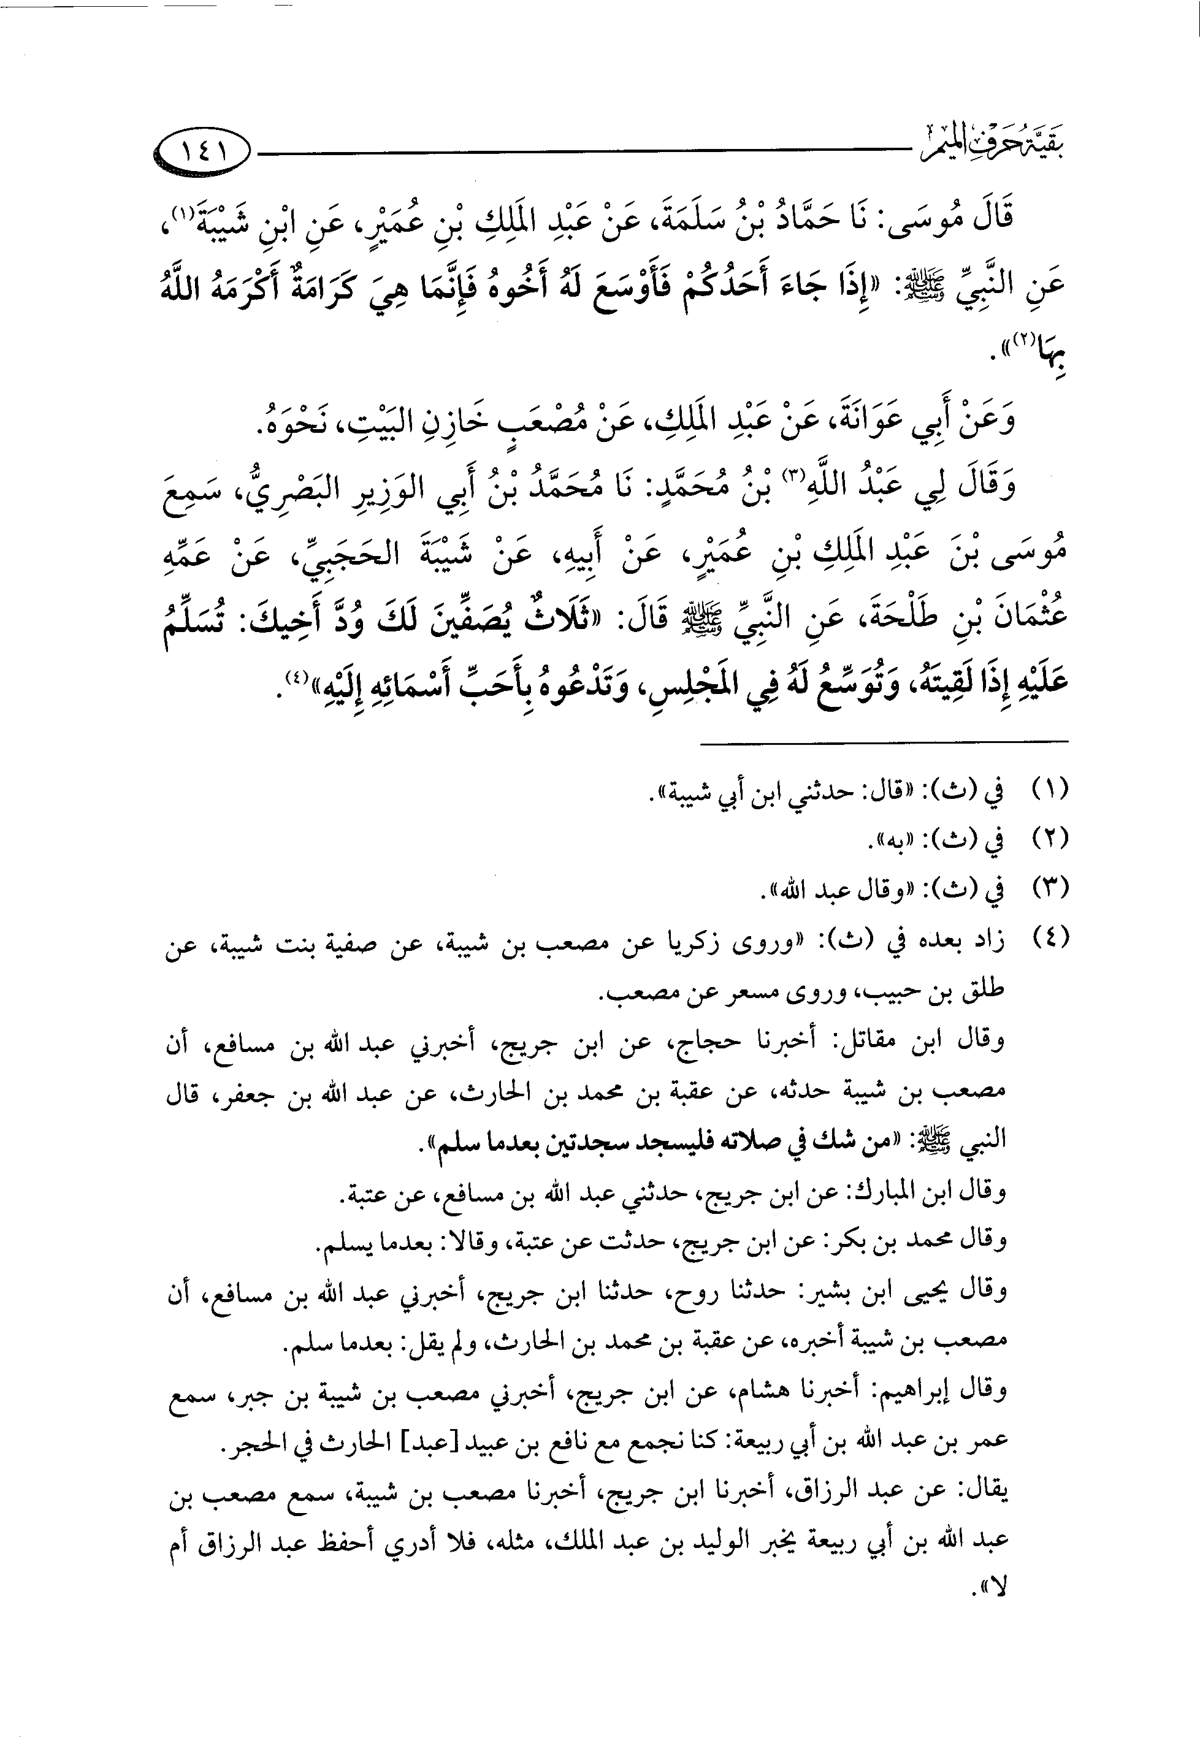 بَقِيَّة حَرْف المِيم
١٤١
قَالَ مُوسَى: نَا حَمَّادُ بْنُ سَلَمَةَ، عَنْ عَبْدِ المَلِكِ بْنِ عُمَيْرٍ، عَنِ ابْنِ شَيْبَةَ(١)،
عَنِ النَّبِيِّ ﷺ: «إِذَا جَاءَ أَحَدُكُمْ فَأَوْسَعَ لَهُ أَخُوهُ فَإِنَّمَا هِيَ كَرَامَةٌ أَكْرَمَهُ اللَّهُ
بِهَا(٢)».
وَعَنْ أَبِي عَوَانَةَ، عَنْ عَبْدِ المَلِكِ، عَنْ مُصْعَبٍ خَازِنِ البَيْتِ، نَحْوَهُ.
وَقَالَ لِي عَبْدُ اللَّهِ(٣) بْنُ مُحَمَّدٍ: نَا مُحَمَّدُ بْنُ أَبِي الوَزِيرِ البَصْرِيُّ، سَمِعَ
مُوسَى بْنَ عَبْدِ المَلِكِ بْنِ عُمَيْرٍ، عَنْ أَبِيهِ، عَنْ شَيْبَةَ الحَجَبِيِّ، عَنْ عَمِّهِ
عُثْمَانَ بْنِ طَلْحَةَ، عَنِ النَّبِيِّ ﷺ قَالَ: «ثَلَاثٌ يُصَفِّينَ لَكَ وُدَّ أَخِيكَ: تُسَلِّمُ
عَلَيْهِ إِذَا لَقِيتَهُ، وَتُوَسِّعُ لَهُ فِي المَجْلِسِ، وَتَدْعُوهُ بِأَحَبِّ أَسْمَائِهِ إِلَيْهِ»(٤).
(١) في (ث): «قال: حدثني ابن أبي شيبة».
(٢) في (ث): «به».
(٣) في (ث): «وقال عبد الله».
(٤) زاد بعده في (ث): «وروى زكريا عن مصعب بن شيبة، عن صفية بنت شيبة، عن
طلق بن حبيب، وروى مسعر عن مصعب.
وقال ابن مقاتل: أخبرنا حجاج، عن ابن جريج، أخبرني عبد الله بن مسافع، أن
مصعب بن شيبة حدثه، عن عقبة بن محمد بن الحارث، عن عبد الله بن جعفر، قال
النبي ﷺ: «من شك في صلاته فليسجد سجدتين بعدما سلم».
وقال ابن المبارك: عن ابن جريج، حدثني عبد الله بن مسافع، عن عتبة.
وقال محمد بن بكر: عن ابن جريج، حدثت عن عتبة، وقالا: بعدما يسلم.
وقال يحيى ابن بشير: حدثنا روح، حدثنا ابن جريج، أخبرني عبد الله بن مسافع، أن
مصعب بن شيبة أخبره، عن عقبة بن محمد بن الحارث، ولم يقل: بعدما سلم.
وقال إبراهيم: أخبرنا هشام، عن ابن جريج، أخبرني مصعب بن شيبة بن جبر، سمع
عمر بن عبد الله بن أبي ربيعة: كنا نجمع مع نافع بن عبيد [عبد] الحارث في الحجر.
يقال: عن عبد الرزاق، أخبرنا ابن جريج، أخبرنا مصعب بن شيبة، سمع مصعب بن
عبد الله بن أبي ربيعة يخبر الوليد بن عبد الملك، مثله، فلا أدري أحفظ عبد الرزاق أم
لا».